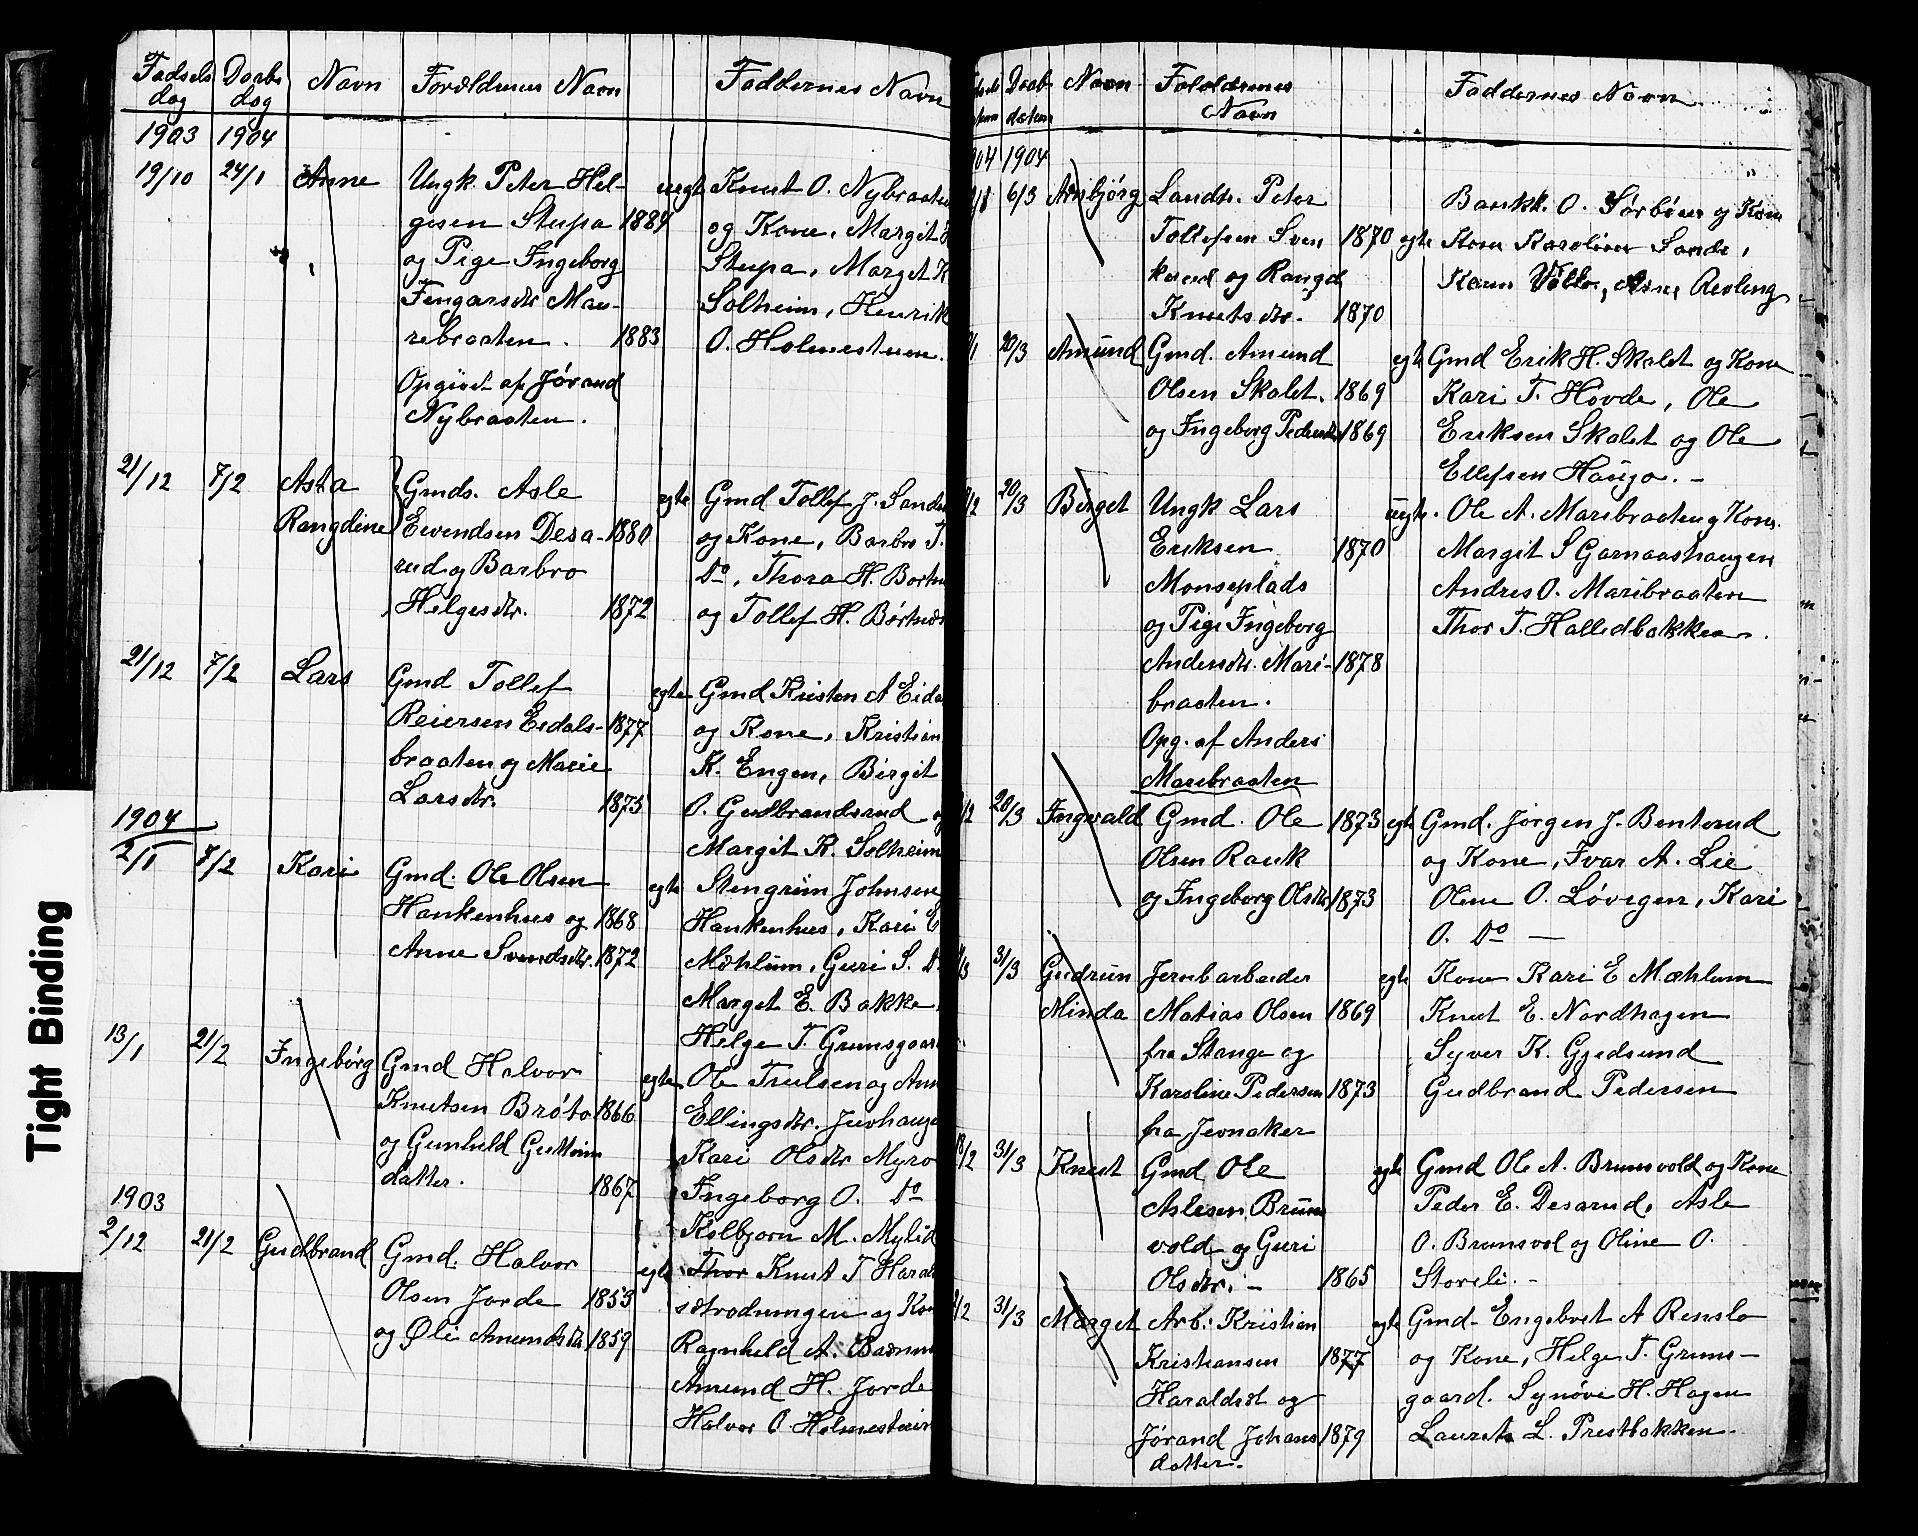 Tight Binding
Fødsels Daabs Navn Forældrenes Navn Faddernes Navn
dag dag
1903 1904
19/10 24/1 Anne Ungk. Peter Hel- uegte Knut O. Nybraaten
gesen Stupa 1884 og Kone, Margit
og Pige Ingeborg Stupa, Marget K
Fingarsdtr Mau- Solheim, Henrik
rebraaten. 1883 O. Holmestuen.
Opgivet af Jørand
Nybraaten.
21/12 7/2 Asta Gmds. Asle egte Gmd Tollef J. Sande
Rangdine Eivendsen Desa- 1880 og Kone, Barbro T.
rud og Barbro Do, Thora H. Bortn
Helgesdtr. 1872 og Tollef H. Børtnes
21/12 7/2 Lars Gmd Tollef egte Gmd Kristen A Eida
Reiersen Eidals- 1877 og Kone, Kristian
braaten og Marie K. Engen, Birgit
Larsdtr. 1875 O. Gudbrandsrud og
Margit K. Solheim
1904
2/1 7/2 Kari Gmd. Ole Olsen egte Stengrim Johnsen
Hankenhus og 1868 Hankenhus, Kari E
Anne Svendsdtr. 1872 Mæhlum, Guri S. Do
Marget E. Bakke
Helge T. Grimsgaar
13/1 21/2 Ingebørg Gmd Halvor egte Ole Trulsen og Ann
Knutsen Brøto 1866 Ellingsdtr. Juvhauge
og Gunhild Guttorms Kari Olsdtr Myro
datter. 1867 Ingeborg O. Do
1903 Kolbjørn M. Mylid
2/12 21/2 Gudbrand Gmd. Halvor egte Thor Knut T Haral
Olsen Jorde 1853 sætrodrumgen og Kon
og Øli Amundsdtr 1859 Ragnhild A.
Amund H. Jorde
Halvor O. Holmestuen
Daab Navn Foreldrenes Faddernes Navn
datum Navn
1904
6/3 Arnbjörg Landh. Peter Bankk. O. Sørbøen og Kone
Tollefsen Sven 1870 egte Karoline Sande,
kerud og Rangd Karen
Knutsdtr. 1870
20/3 Amund Gmd. Amund egte Gmd Erik H. Skalet og Kone
Olsen Skalet. 1869 Kari T. Hovde, Ole
og Ingeborg Pedersdtr 1869 Eriksen Skalet og Ole
Ellefsen Haugo. -
20/3 Birget Ungk Lars uegte. Ole A. Maribraaten og Kone.
Eriksen 1870 Margit S Garnaashaugen
Monseplads Andres O. Maribraaten
og Pige Ingeborg Thor T. Halledbakken.
Andersdtr. Mari- 1878
braaten.
Opg. af Anders
Maribraaten
20/3 Ingvald Gmd. Ole 1873 egte Gmd. Jørgen J. Benterud
Olsen Rauk og Kone, Ivar A. Lie
og Ingeborg Olsdtr 1873 Olene O. Løvigen, Kari
O. Do —
31/3 Gudrun Jernbarbeider egte Kone Kari E Mæhlum
Minda Matias Olsen 1869 Knut E. Nordhagen
fra Stange og Syver K. Gjedsund
Karoline Pedersen 1873 Gudbrand Pedersen
fra Jevnaker
18/2 31/3 Knut Gmd Ole egte Gmd Ole A. Brunsvold og Kone
Aslesen Bruns Peder E. Desarud, Asle
vold og Guri O. Brunsvol og Oline O.
Olsdtr. - 1865 Storeli. -
31/3 Marget Arb. Kristian egte Gmd- Engebret A Renslo
Kristiansen 1877 og Kone, Helge T. Grims-
Haraldst og gaard. Synøve H. Hagen
Jørand Johans 1879 Laurits L. Prestbakken.
datter.